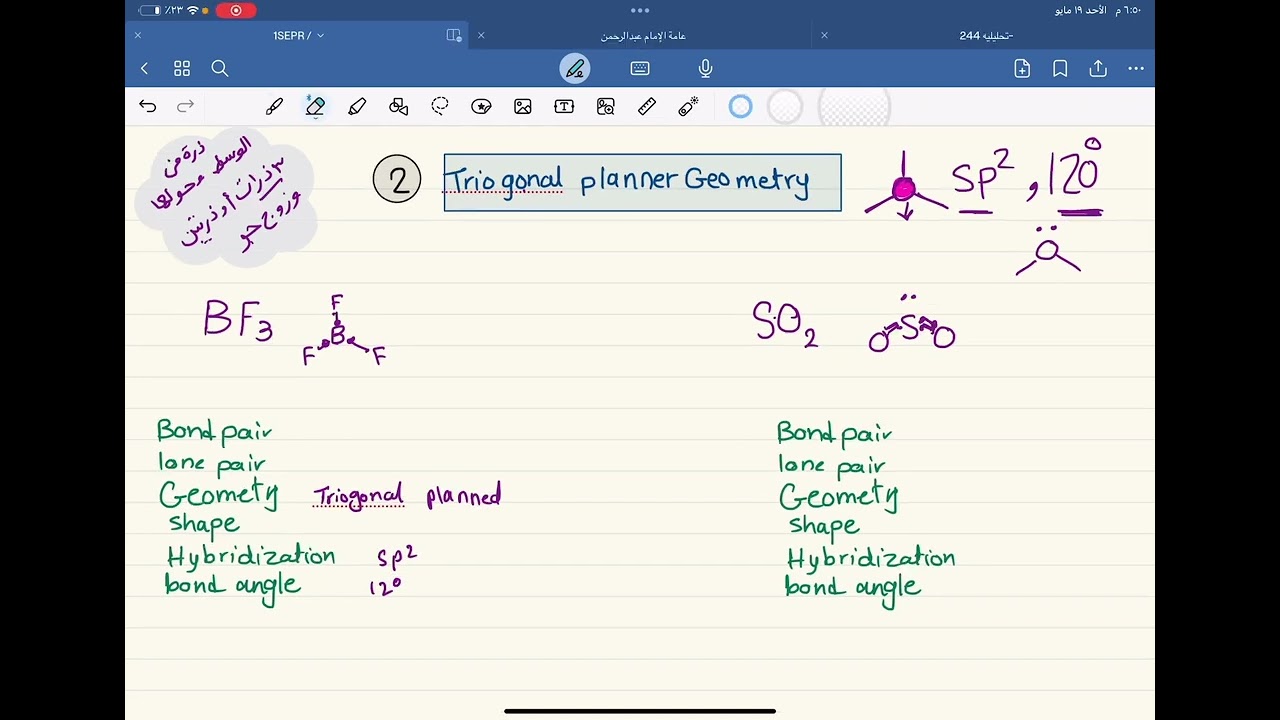 ٦:٥٠ م الأحد ١٩ مايو
٢٣٪
1SEPR /
عامة الإمام عبدالرحمن
تحليليه 244-
ذرة من
الوسط وحولها
٣ ذرات أو ذرتين
وزوج حر
2
Triogonal planner Geometry
sp2 , 120°
BF3
F
B
F F
SO2
S
O O
Bond pair
lone pair
Geomety Triogonal planned
shape
Hybridization sp2
bond angle 120
Bond pair
lone pair
Geomety
shape
Hybridization
bond angle